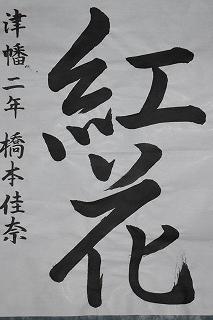 紅花
津幡二年 橋本佳奈